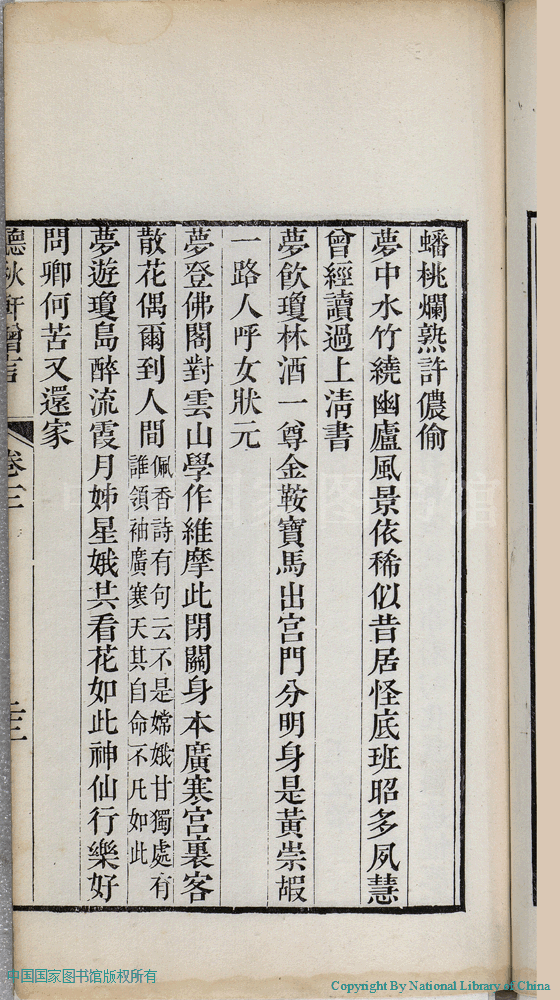 蟠桃爛熟許儂偷
夢中水竹繞幽廬風景依稀似昔居怪底班昭多夙慧
曾經讀過上清書
夢飲瓊林酒一尊金鞍寶馬出宮門分明身是黃崇嘏
一路人呼女狀元
夢登佛閣對雲山學作維摩此閉關身本廣寒宮裏客
散花偶爾到人間
佩香詩有句云不是嫦娥甘獨處有
誰領袖廣寒天其自命不凡如此
夢遊瓊島醉流霞月姊星娥共看花如此神仙行樂好
問卿何苦又還家
聽秋軒贈言
卷三
中国国家图书馆
中国国家图书馆版权所有
Copyright By National Library of China